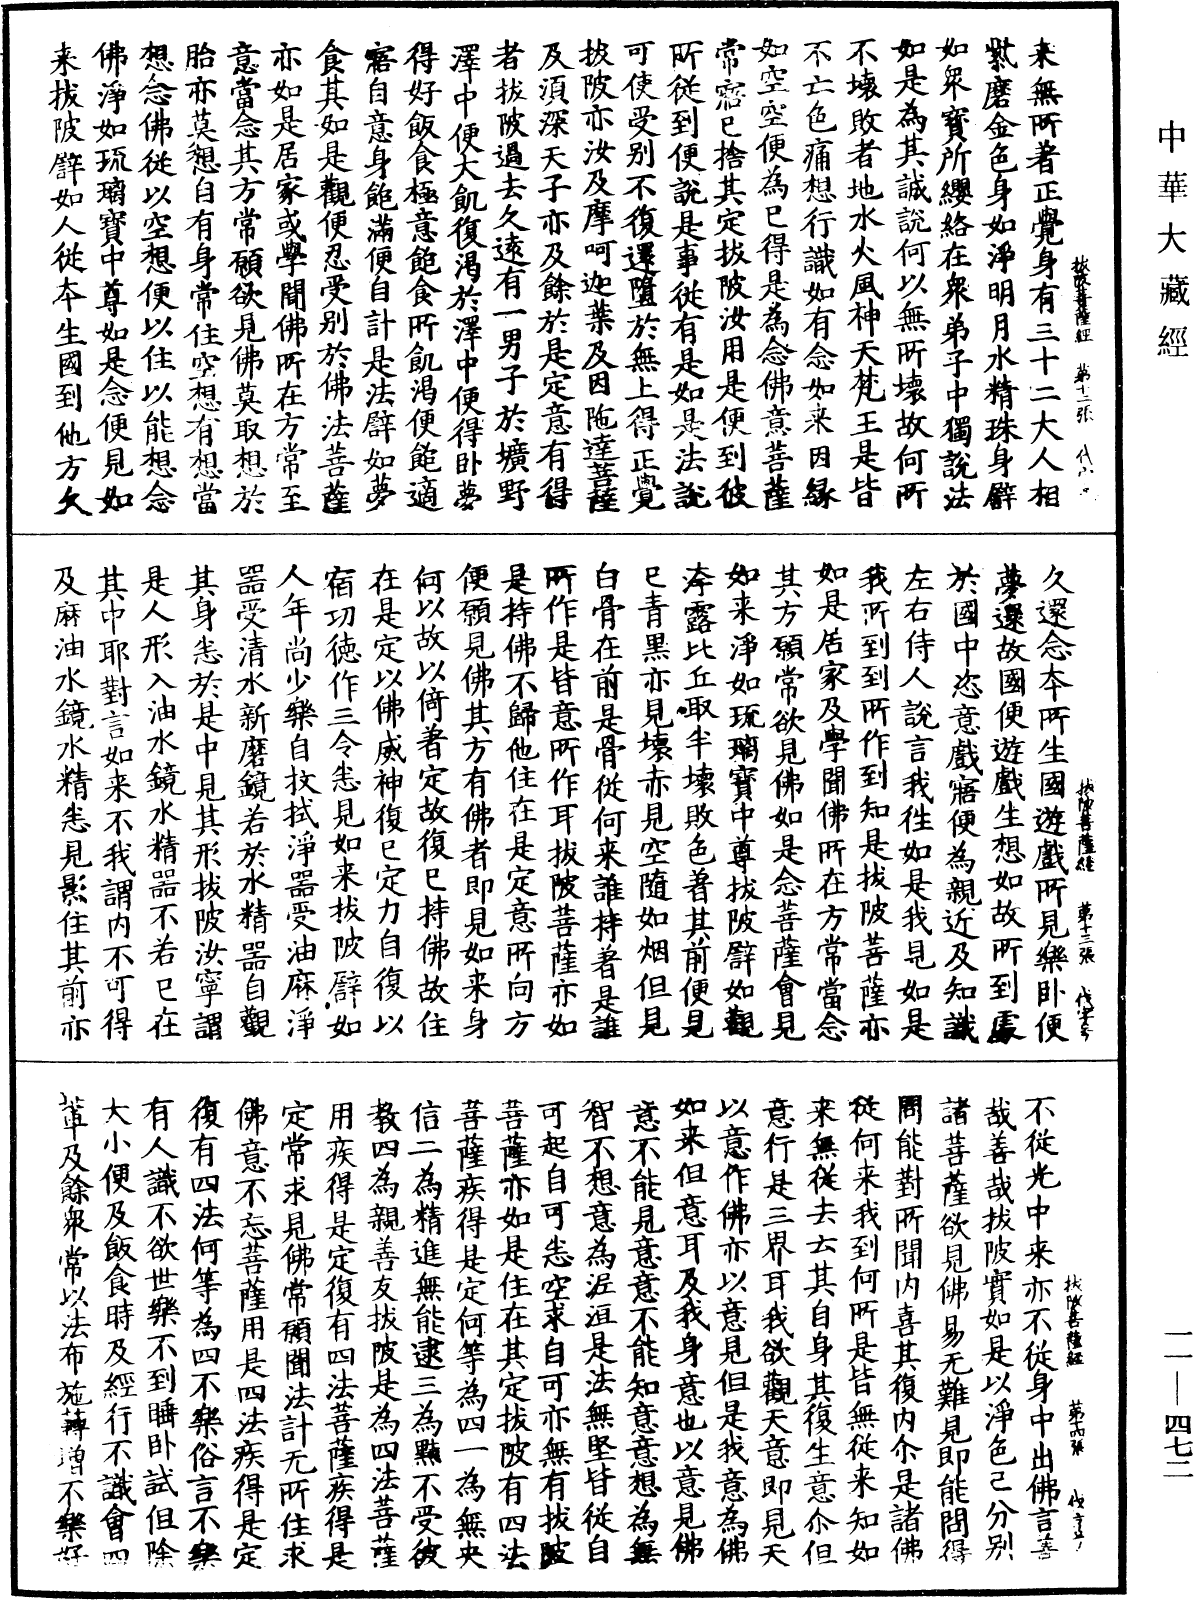 中華大藏經
拔陂菩薩經 第十二張
来無所著正覺身有三十二大人相
紫磨金色身如淨明月水精珠身譬
如衆寶所纓絡在衆弟子中獨說法
如是為其誠說何以無所壞故何所
不壞敗者地水火風神天梵王是皆
不亡色痛想行識如有念如来因緣
如空空便為已得是為念佛意菩薩
常寤已捨其定拔陂汝用是便到彼
所從到便說是事從有是如是法說
可使受别不復還墮於無上得正覺
拔陂亦汝及摩呵迦葉及因陁達菩薩
及湏深天子亦及餘於是定意有得
者拔陂過去久遠有一男子於壙野
澤中便大飢復渴於澤中便得卧夢
得好飯食極意飽食所飢渴便飽適
寤自意身飽滿便自計是法譬如夢
食其如是觀便忍受别於佛法菩薩
亦如是居家或學聞佛所在方常至
意當念其方常願欲見佛莫取想於
胎亦莫想自有身常住空想有想當
想念佛從以空想便以住以能想念
佛淨如琉璃寶中尊如是念便見如
来拔陂譬如人從夲生國到他方久
拔陂菩薩經 第十三張
久還念夲所生國遊戲所見樂卧便
夢還故國便遊戲生想如故所到處
於國中恣意戲寤便為親近及知識
左右侍人說言我徃如是我見如是
我所到到所作到知是拔陂菩薩亦
如是居家及學聞佛所在方常當念
其方願常欲見佛如是念菩薩會見
如来淨如琉璃寶中尊拔陂譬如觀
洿露比丘取半壞敗色著其前便見
已青黑亦見壞亦見空隨如烟但見
白骨在前是骨從何来誰持著是誰
所作是皆意所作耳拔陂菩薩亦如
是持佛不歸他住在是定意所向方
便願見佛其方有佛者即見如来身
何以故以倚著定故復已持佛故住
在是定以佛威神復已定力自復以
宿功徳作三令悉見如来拔陂譬如
人年尚少樂自抆拭淨器受油麻淨
器受清水新磨鏡若於水精器自觀
其身悉於是中見其形拔陂汝寧謂
是人形入油水鏡水精器不若已在
其中耶對言如来不我謂内不可得
及麻油水鏡水精悉見影住其前亦
拔陂菩薩經 第十四張
不從光中来亦不從身中出佛言善
哉善哉拔陂實如是以淨色已分别
諸菩薩欲見佛易无難見即能問得
問能對所聞内喜其復内尒是諸佛
從何来我到何所是皆無從来知如
来無從去去其自身其復生意尒但
意行是三界耳我欲觀天意即見天
以意作佛亦以意見但是我意為佛
如来但意耳及我身意也以意見佛
意不能見意意不能知意意想為無
智不想意為泥洹是法無堅皆從自
可起自可悉空求自可亦無有拔陂
菩薩亦如是住在其定拔陂有四法
菩薩疾得是定何等為四一為無央
信二為精進無能逮三為黠不受彼
教四為親善友拔陂是為四法菩薩
用疾得是定復有四法菩薩疾得是
定常求見佛常願聞法計无所住求
佛意不忘菩薩用是四法疾得是定
復有四法何等為四不樂俗言不樂
有人識不欲世樂不到睡卧試但除
大小便及飯食時及經行不識會四
輩及餘衆常以法布施轉增不樂好
一一—四七二